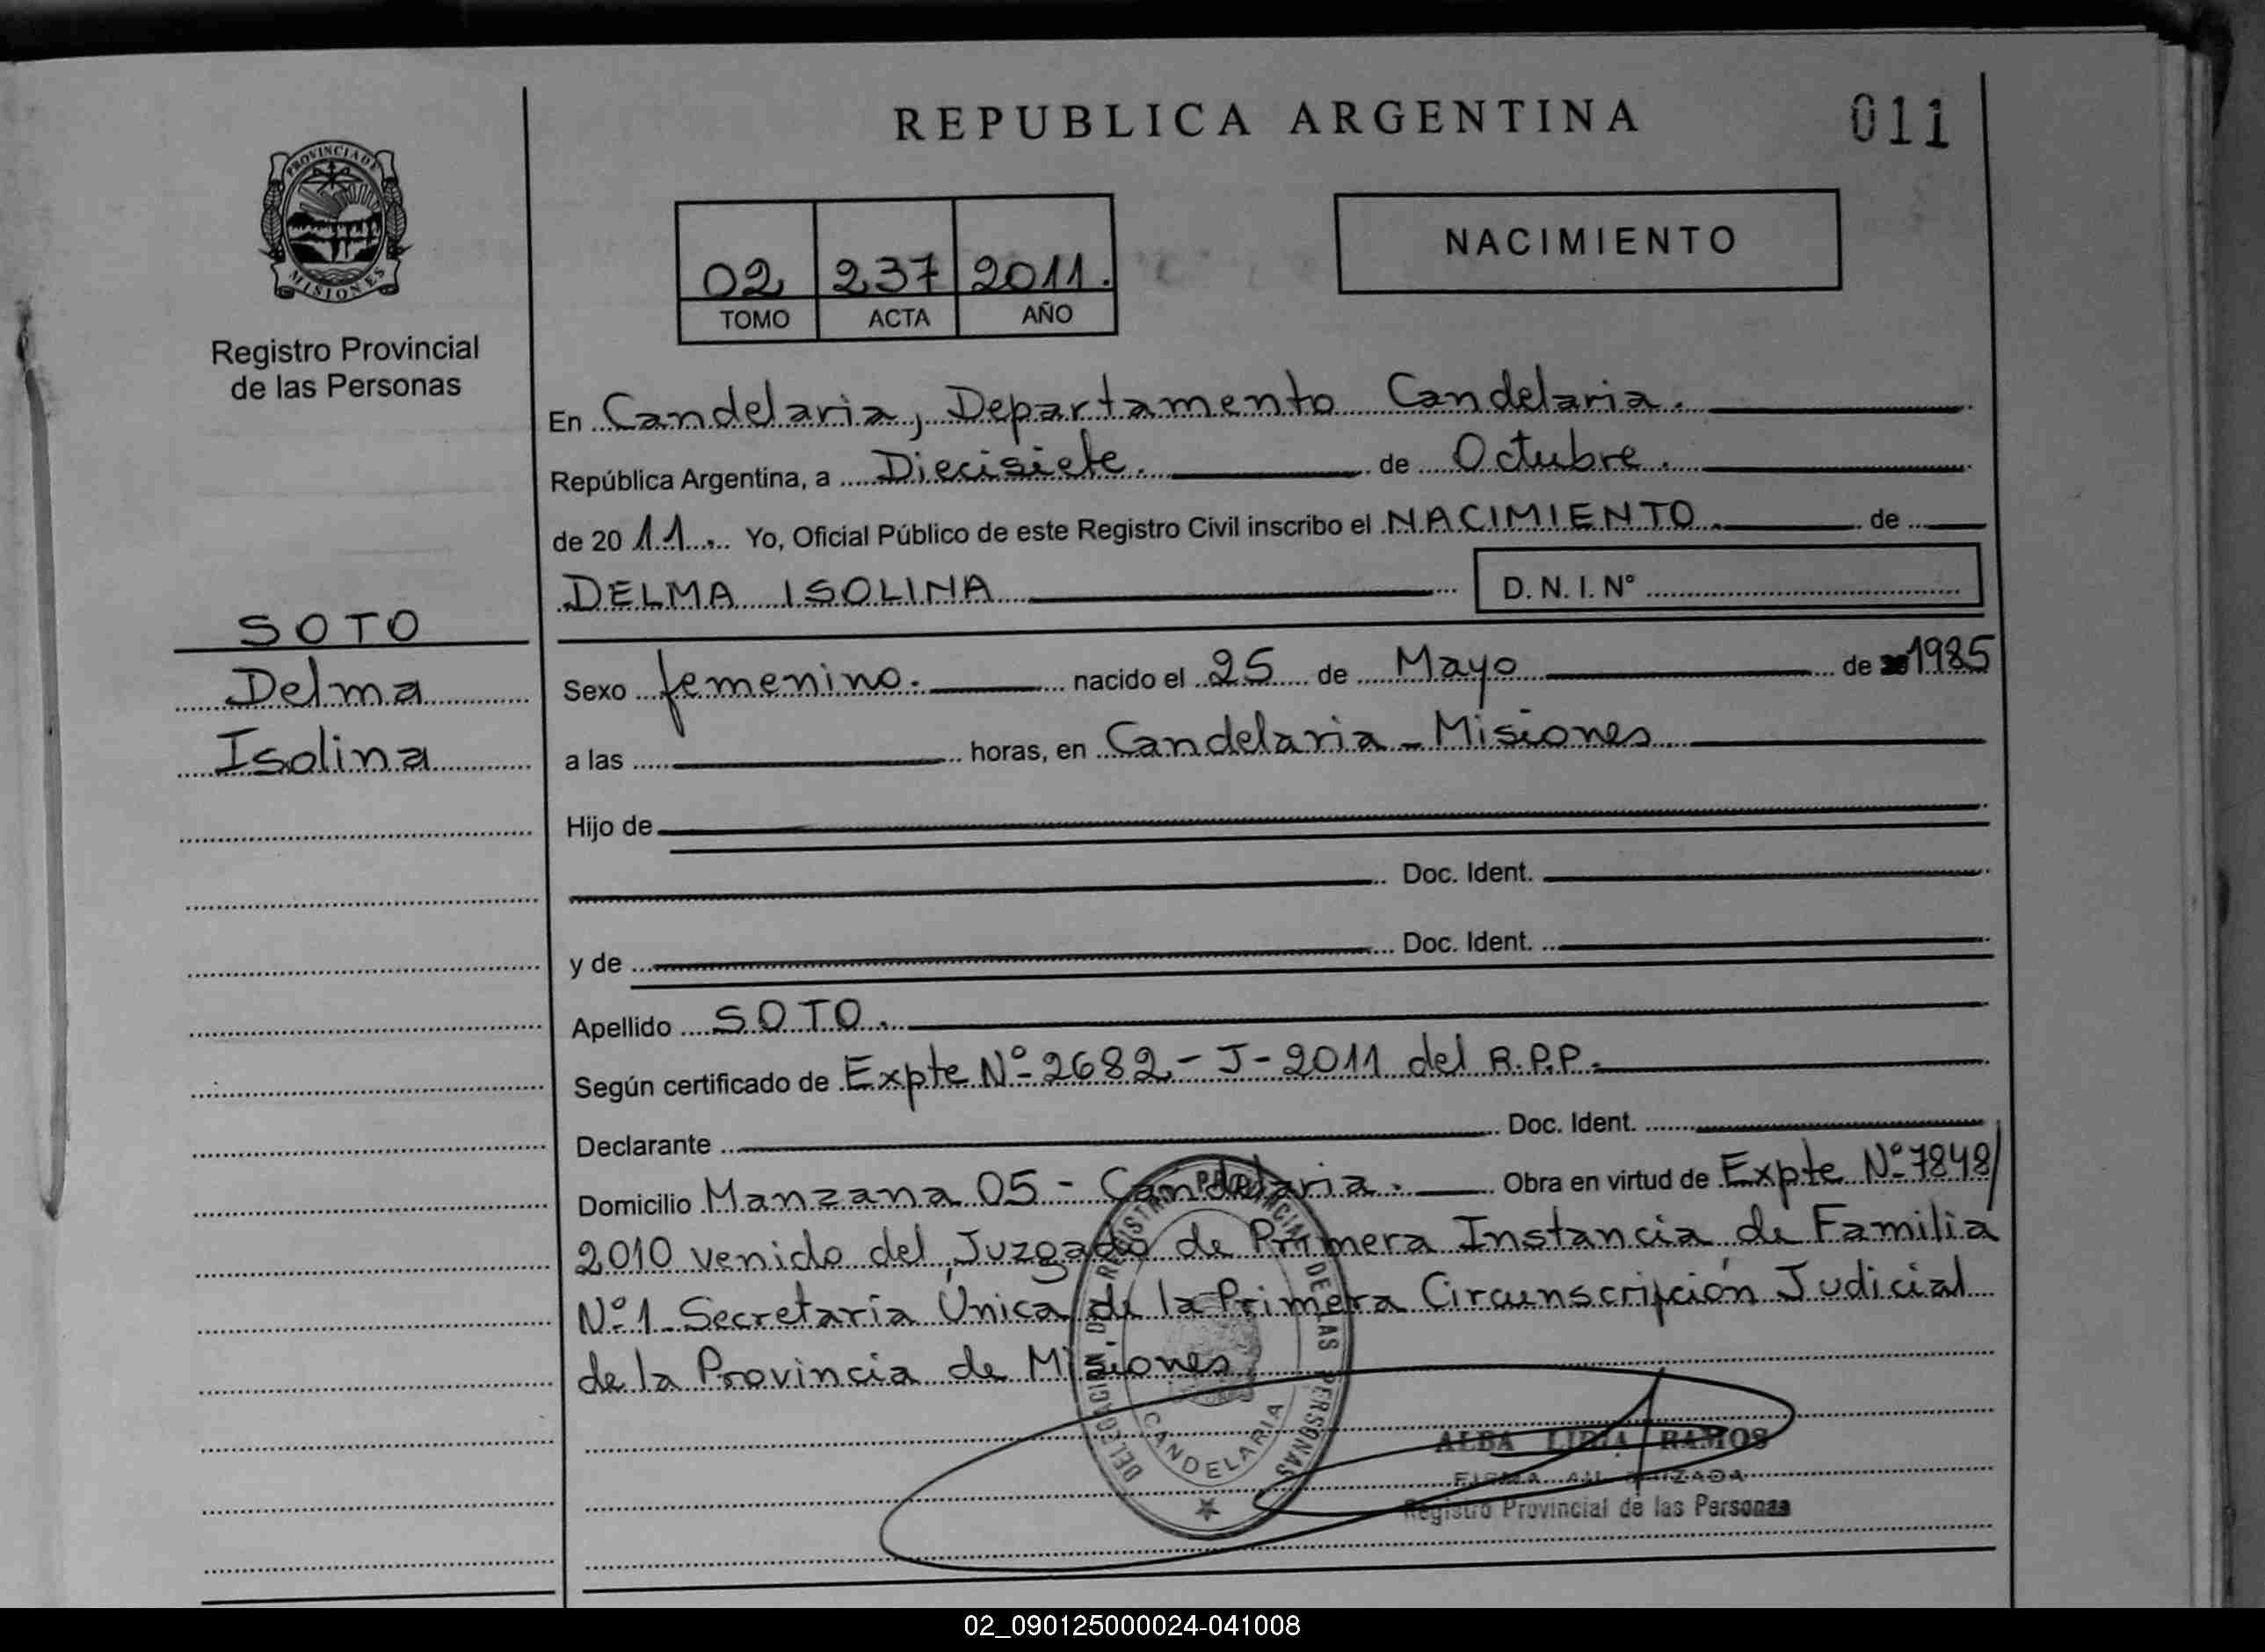 REPUBLICA ARGENTINA
011
PROVINCIA DE
MISIONES
Registro Provincial
de las Personas
02 237 2011.
TOMO ACTA AÑO
NACIMIENTO
En Candelaria, Departamento Candelaria.
República Argentina, a Diecisiete. de Octubre.
de 2011. Yo, Oficial Público de este Registro Civil inscribo el NACIMIENTO. de
DELMA ISOLINA D. N. I. N°
SOTO
Delma
Isolina
Sexo femenino. nacido el 25 de Mayo de 1985
a las horas, en Candelaria - Misiones.
Hijo de
Doc. Ident.
y de Doc. Ident.
Apellido SOTO.
Según certificado de Expte Nº 2682 - J - 2011 del R.P.P.
Declarante Doc. Ident.
Domicilio Manzana 05 - Candelaria. Obra en virtud de Expte Nº 7848/
2010 venido del Juzgado de Primera Instancia de Familia
Nº 1 Secretaría Única de la Primera Circunscripción Judicial
de la Provincia de Misiones
DELEGACION, DE REGISTRO PROVINCIAL DE LAS PERSONAS
CANDELARIA
ALBA LIDIA RAMOS
FIRMA AUTORIZADA
Registro Provincial de las Personas
02_090125000024-041008